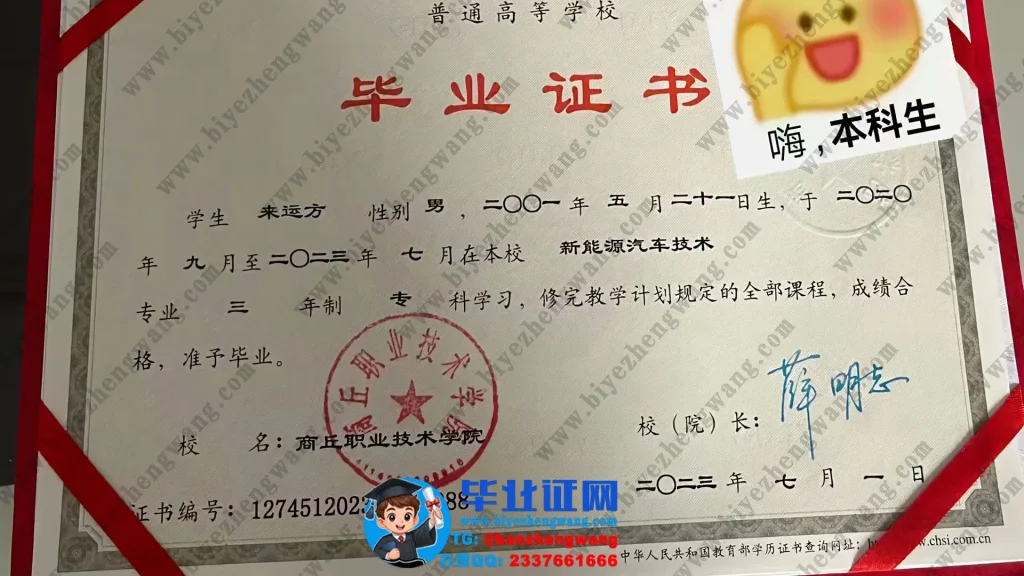 普通高等学校
毕业证书
嗨，本科生
学生 来运方 性别 男，二〇〇一年 五 月二十一日生，于 二〇二〇
年 九 月至二〇二三年 七 月在本校 新能源汽车技术
专业 三 年制 专 科学习，修完教学计划规定的全部课程，成绩合
格，准予毕业。
商丘职业技术学院
校 名：商丘职业技术学院
校（院）长：薛明志
二〇二三年 七 月 一 日
证书编号：1274512023 88
毕业证网
www.biyezhengwang.com
TG: Chanzhengwang
QQ: 2337661666
中华人民共和国教育部学历证书查询网址：http www.chsi.com.cn
www.biyezhengwang.com